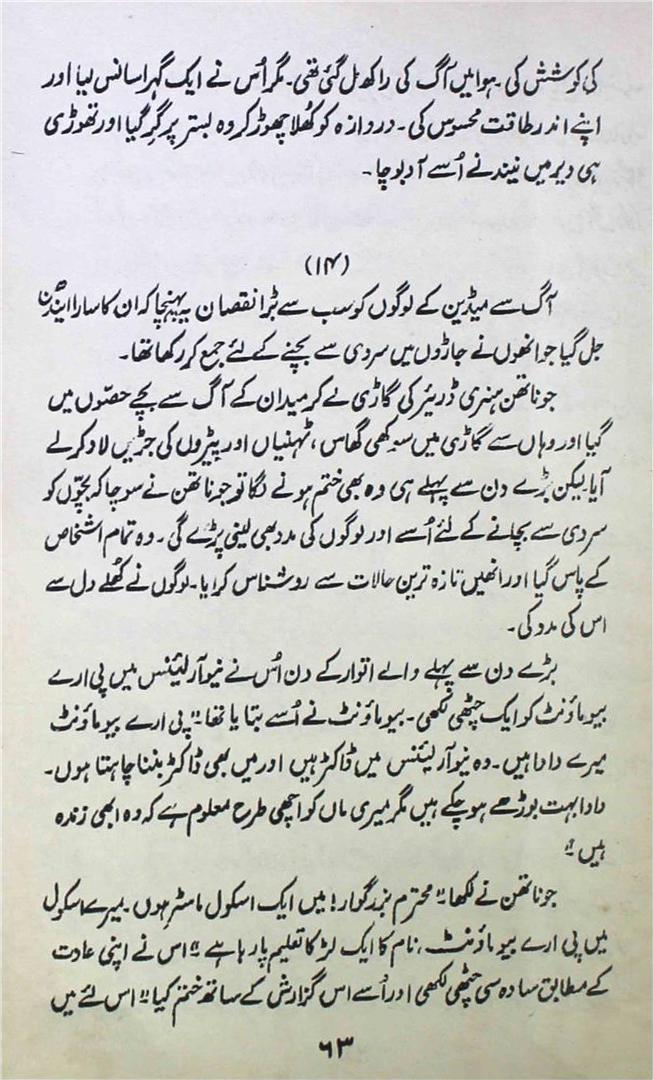 کی کوشش کی۔ ہوا میں آگ کی راکھ مل گئی تھی۔ مگر اُس نے ایک گہرا سانس لیا اور
اپنے اندر طاقت محسوس کی۔ دروازہ کو کُھلا چھوڑ کر وہ بستر پر گِر گیا اور تھوڑی
ہی دیر میں نیند نے اُسے آ دبوچا۔
(۱۴)
آگ سے میڈین کے لوگوں کو سب سے بڑا نقصان یہ پہنچا کہ ان کا سارا ایندھن
جل گیا جو انھوں نے جاڑوں میں سردی سے بچنے کے لئے جمع کر رکھا تھا۔
جوناتھن ہنری ڈریئر کی گاڑی لے کر میدان کے آگ سے بچے حصّوں میں
گیا اور وہاں سے گاڑی میں سوکھی گھاس، ٹہنیاں اور پیڑوں کی جڑیں لاد کر لے
آیا۔ لیکن بڑے دن سے پہلے ہی وہ بھی ختم ہونے لگا تو جوناتھن نے سوچا کہ بچّوں کو
سردی سے بچانے کے لئے اُسے اور لوگوں کی مدد بھی لینی پڑے گی۔ وہ تمام اشخاص
کے پاس گیا اور انھیں تازہ ترین حالات سے روشناس کرایا۔ لوگوں نے کُھلے دل سے
اس کی مدد کی۔
بڑے دن سے پہلے والے اتوار کے دن اُس نے نیو آرلیئنس میں پی ارے
بیوماؤنٹ کو ایک چٹھی لکھی۔ بیوماؤنٹ نے اُسے بتایا تھا: "پی ارے بیوماؤنٹ
میرے دادا ہیں۔ وہ نیو آرلیئنس میں ڈاکٹر ہیں اور میں بھی ڈاکٹر بننا چاہتا ہوں۔
دادا بہت بوڑھے ہو چکے ہیں مگر میری ماں کو اچھی طرح معلوم ہے کہ وہ ابھی زندہ
ہیں"
جوناتھن نے لکھا: "محترم بزرگوار! میں ایک اسکول ماسٹر ہوں۔ میرے اسکول
میں پی ارے بیوماؤنٹ، نام کا ایک لڑکا تعلیم پا رہا ہے" اس نے اپنی عادت
کے مطابق سادہ سی چٹھی لکھی اور اُسے اس گزارش کے ساتھ ختم کیا: "اس لئے میں
۶۳